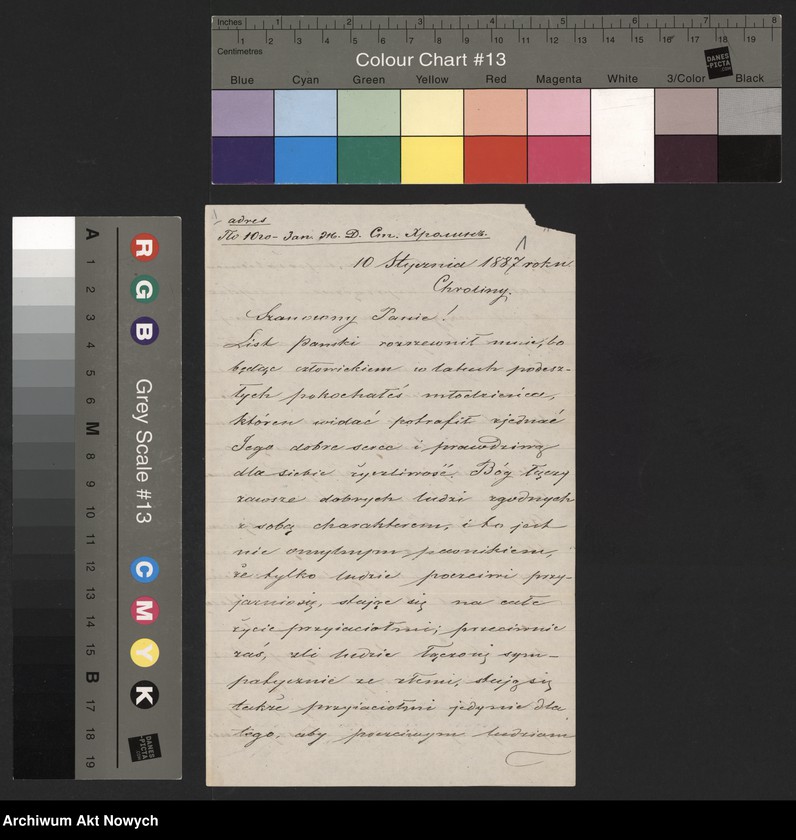 Inches 1 2 3 4 5 6 7 8
1 2 3 4 5 6 7 8 9 10 11 12 13 14 15 16 17 18 19
Centimetres
Colour Chart #13
DANES-PICTA.COM
Blue Cyan Green Yellow Red Magenta White 3/Color Black
A 1 2 3 4 5 6 M 8 9 10 11 12 13 14 15 B 17 18 19
R G B
Grey Scale #13
C M Y K
DANES-PICTA.COM
adres
По Юго-Зап. Ж. Д. Ст. Кролинъ.
10 Stycznia 1887 roku
Chroliny.
Szanowny Panie!
List pański rozrzewnił mnie, bo
będąc człowiekiem w latach podesz-
łych pokochałeś młodzieńca,
któren widać potrafił zjednać
Jego dobre serce i prawdziwą
dla siebie życzliwość. Bóg łączy
zawsze dobrych ludzi zgodnych
z sobą charakterem, i to jest
nie omylnym pewnikiem,
że tylko ludzie poczciwi przy-
jaźnią się, stając się na całe
życie przyjaciołmi; przeciwnie
zaś, źli ludzie łączą się sym-
patycznie ze złemi, stają się
także przyjaciołmi jedynie dla
tego, aby poczciwym ludziom
Archiwum Akt Nowych